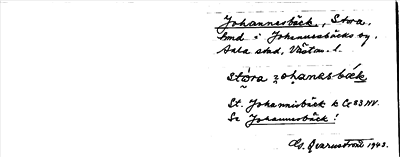 Johannesbäck, Stora.
Smd i Johannesbäcks by.
Sala stad, Västm. l.
stòra ɉohanesbä́k
St. Johannisbäck k Ce 83 NV.
Se Johannesbäck!
G. Qvarnström 1943.